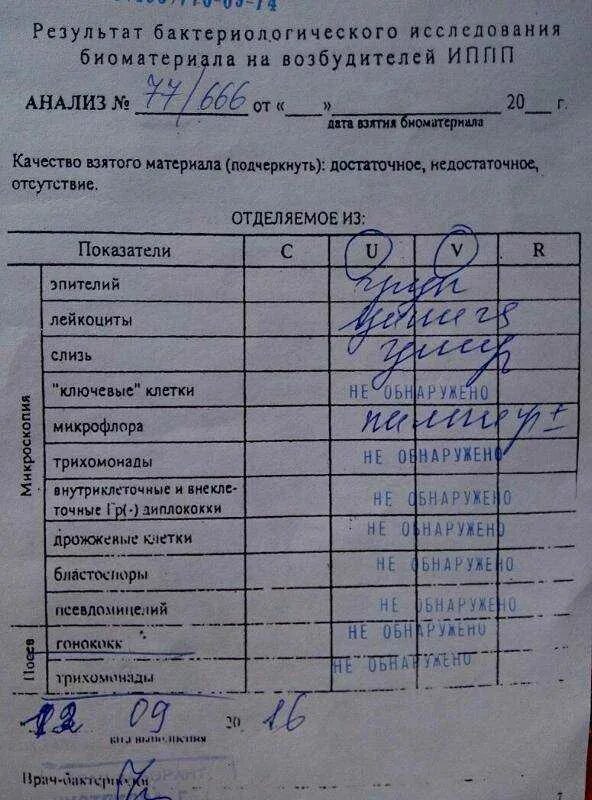 Результат бактериологического исследования
биоматериала на возбудителей ИППП
АНАЛИЗ № 77/666 от « » 20 г.
дата взятия биоматериала
Качество взятого материала (подчеркнуть): достаточное, недостаточное,
отсутствие.
ОТДЕЛЯЕМОЕ ИЗ:
Показатели C U V R
Микроскопия
эпителий
лейкоциты
слизь
"ключевые" клетки НЕ ОБНАРУЖЕНО
микрофлора
трихомонады НЕ ОБНАРУЖЕНО
внутриклеточные и внекле-
точные Гр(-) диплококки НЕ ОБНАРУЖЕНО
дрожжевые клетки НЕ ОБНАРУЖЕНО
бластоспоры НЕ ОБНАРУЖЕНО
псевдомицелий НЕ ОБНАРУЖЕНО
Посев
гонококк НЕ ОБНАРУЖЕНО
трихомонады НЕ ОБНАРУЖЕНО
12 09 20 16